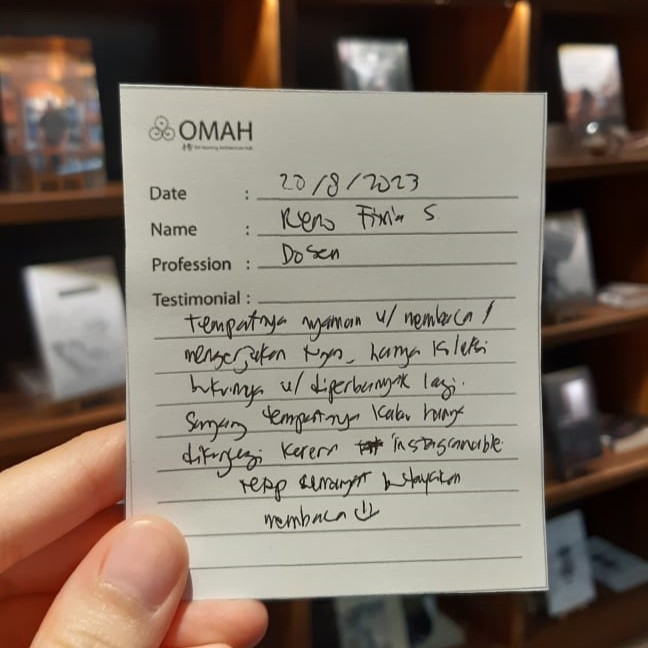 OMAH
Date : 20/8/2023
Name : Reno S
Profession : Dosen
Testimonial :
tempatnya nyaman u/ membaca /
mengerjakan tugas, hanya koleksi
bukunya u/ diperbanyak lagi.
Sayang tempatnya kalau hanya
dikunjungi karena instagramable
tetap semangat budayakan
membaca